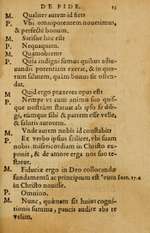 DE FIDE. 15
M. Qualiter autem id fiet?
P. Vbi omnipotentem nouerimus,
& perfectè bonum.
M. Satisne hoc est?
P. Nequaquam.
M. Quamobrem?
P. Quia indigni sumus quibus osten-
dendis potentiam exerat, & in quo-
rum salutem, quàm bonus sit osten-
dat.
M. Quid ergo præterea opus est?
P. Nempe vt cum animo suo quis-
que nostrûm statuat ab ipso se dili-
gi, eumque sibi & patrem esse velle,
& salutis autorem.
M. Vnde autem nobis id constabit?
P. Ex verbo ipsius scilicet, vbi suam
nobis misericordiam in Christo ex-
ponit, & de amore erga nos suo te-
statur.
M. Fiduciæ ergo in Deo collocandæ
fundamentum ac principium est eum
in Christo nouisse.
P. Omnino.
M. Nunc, quænam sit huius cogni-
tionis summa, paucis audire abs te
velim.